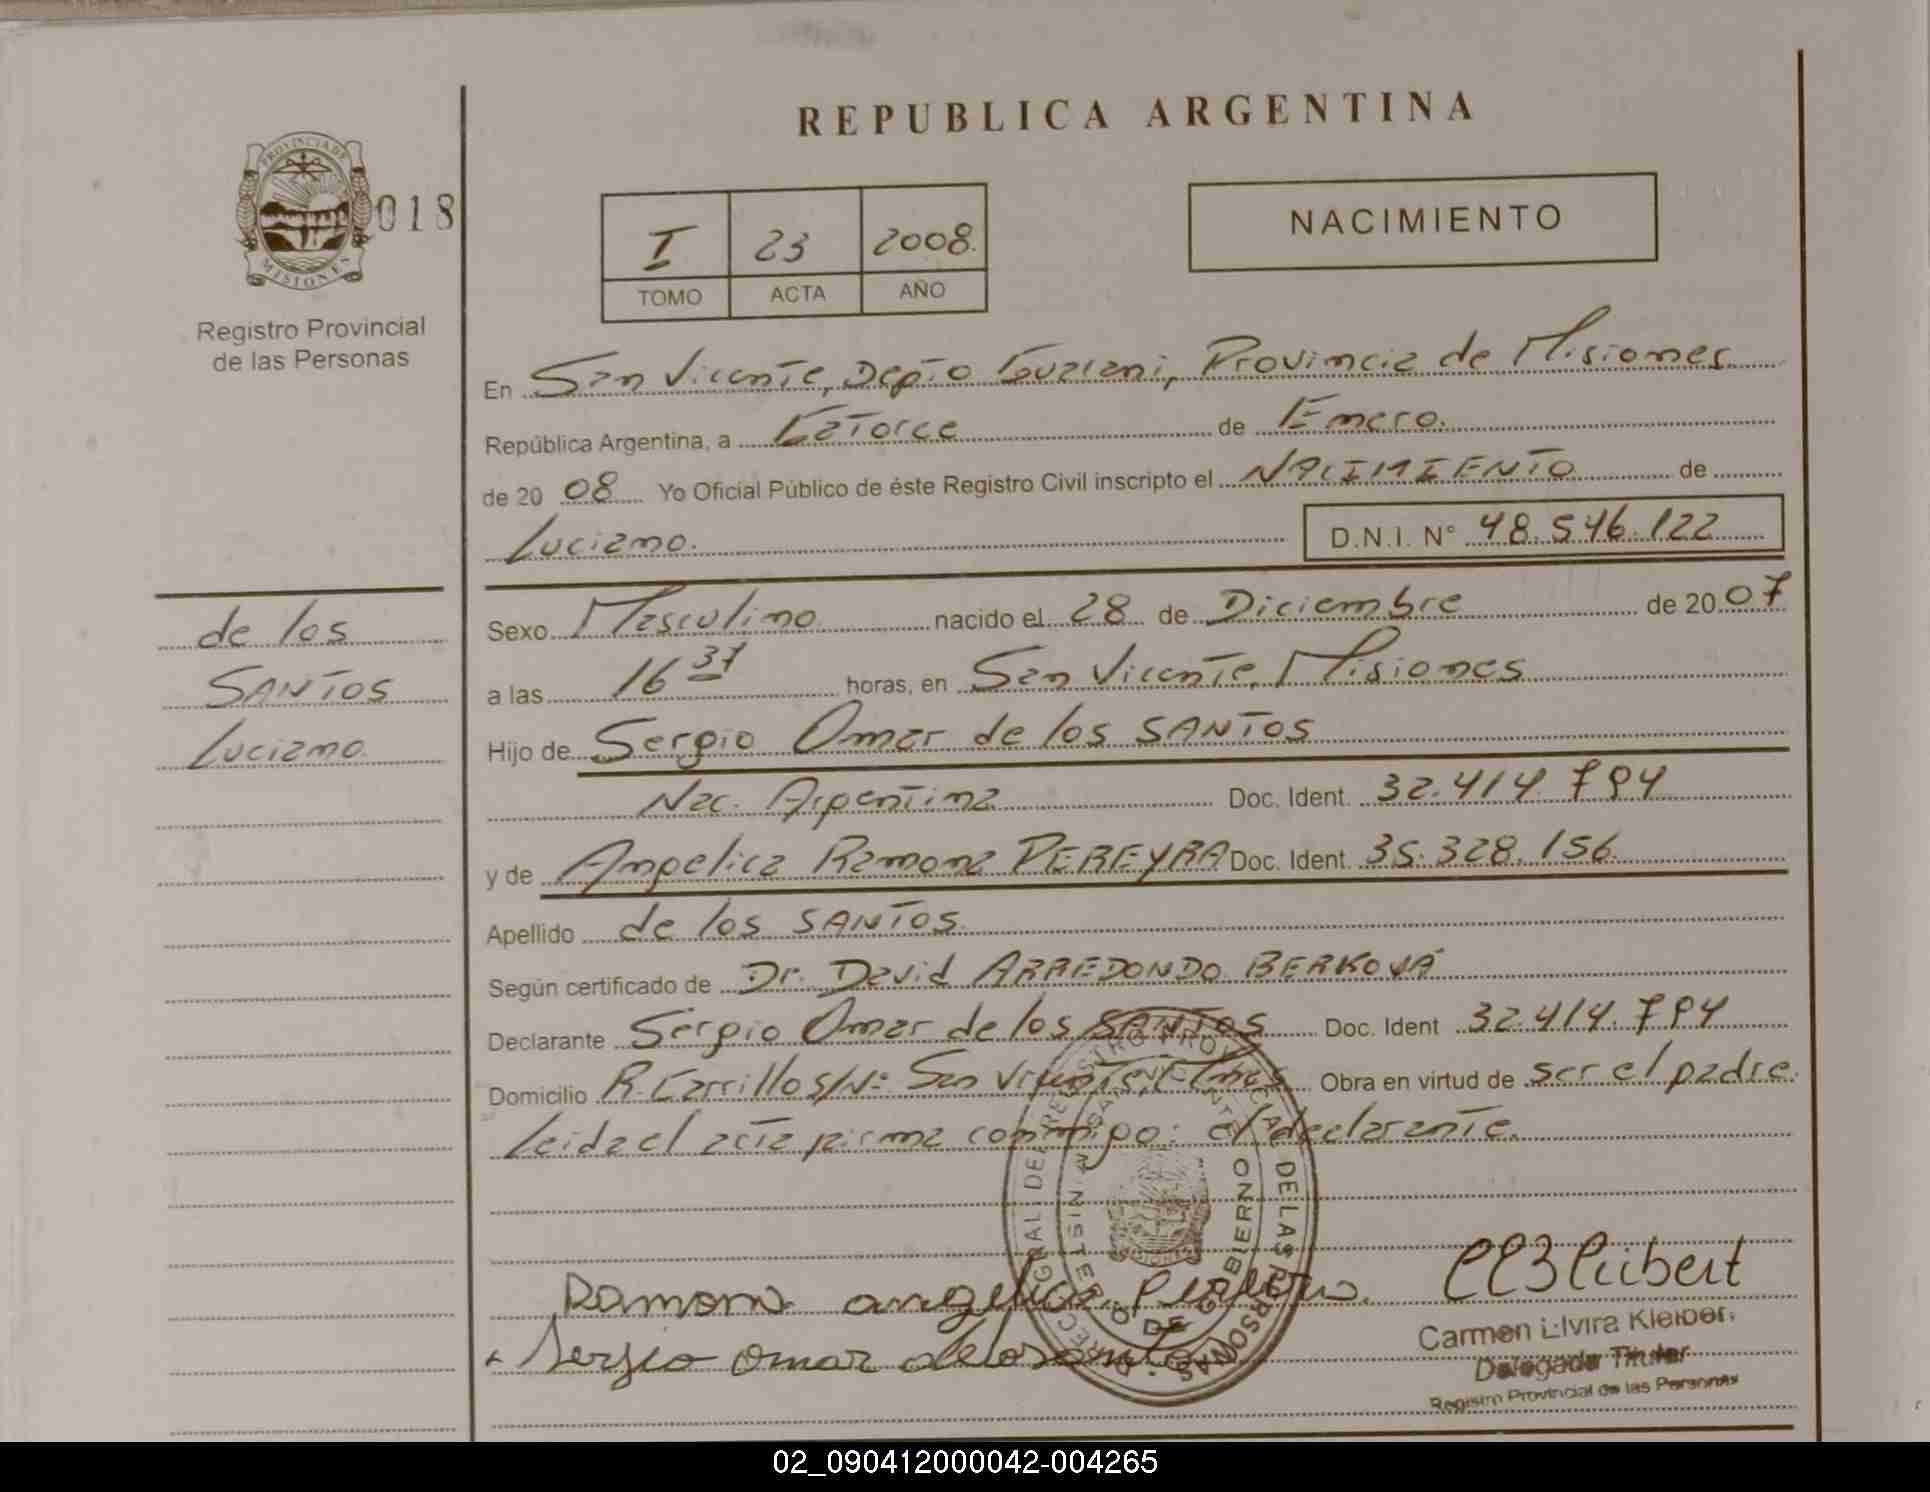 REPUBLICA ARGENTINA
PROVINCIA DE
MISIONES
018
Registro Provincial
de las Personas
I 23 2008.
TOMO ACTA AÑO
NACIMIENTO
En San Vicente, Depto Guarani, Provincia de Misiones
República Argentina, a Catorce de Enero.
de 20 08 Yo Oficial Público de éste Registro Civil inscripto el NACIMIENTO de
Luciano. D.N.I. N° 48.546.122
de los
SANTOS
Luciano
Sexo Masculino nacido el 28 de Diciembre de 20 07
a las 16 37 horas, en San Vicente, Misiones
Hijo de Sergio Omar de los SANTOS
Nac. Argentina Doc. Ident. 32.414.794
y de Angelica Ramona PEREYRA Doc. Ident. 35.328.156
Apellido de los SANTOS
Según certificado de Dr. David ARREDONDO
Declarante Sergio Omar de los SANTOS Doc. Ident 32.414.794
Domicilio R. Carrillo s/N° San Vicente, Mnes Obra en virtud de ser el padre.
Leida el acta firma conmigo: el declarante.
Ramona angelica
Sergio Omar delossantos
Carmen Elvira Kleiber
Delegada Titular
Registro Provincial de las Personas
02_090412000042-004265